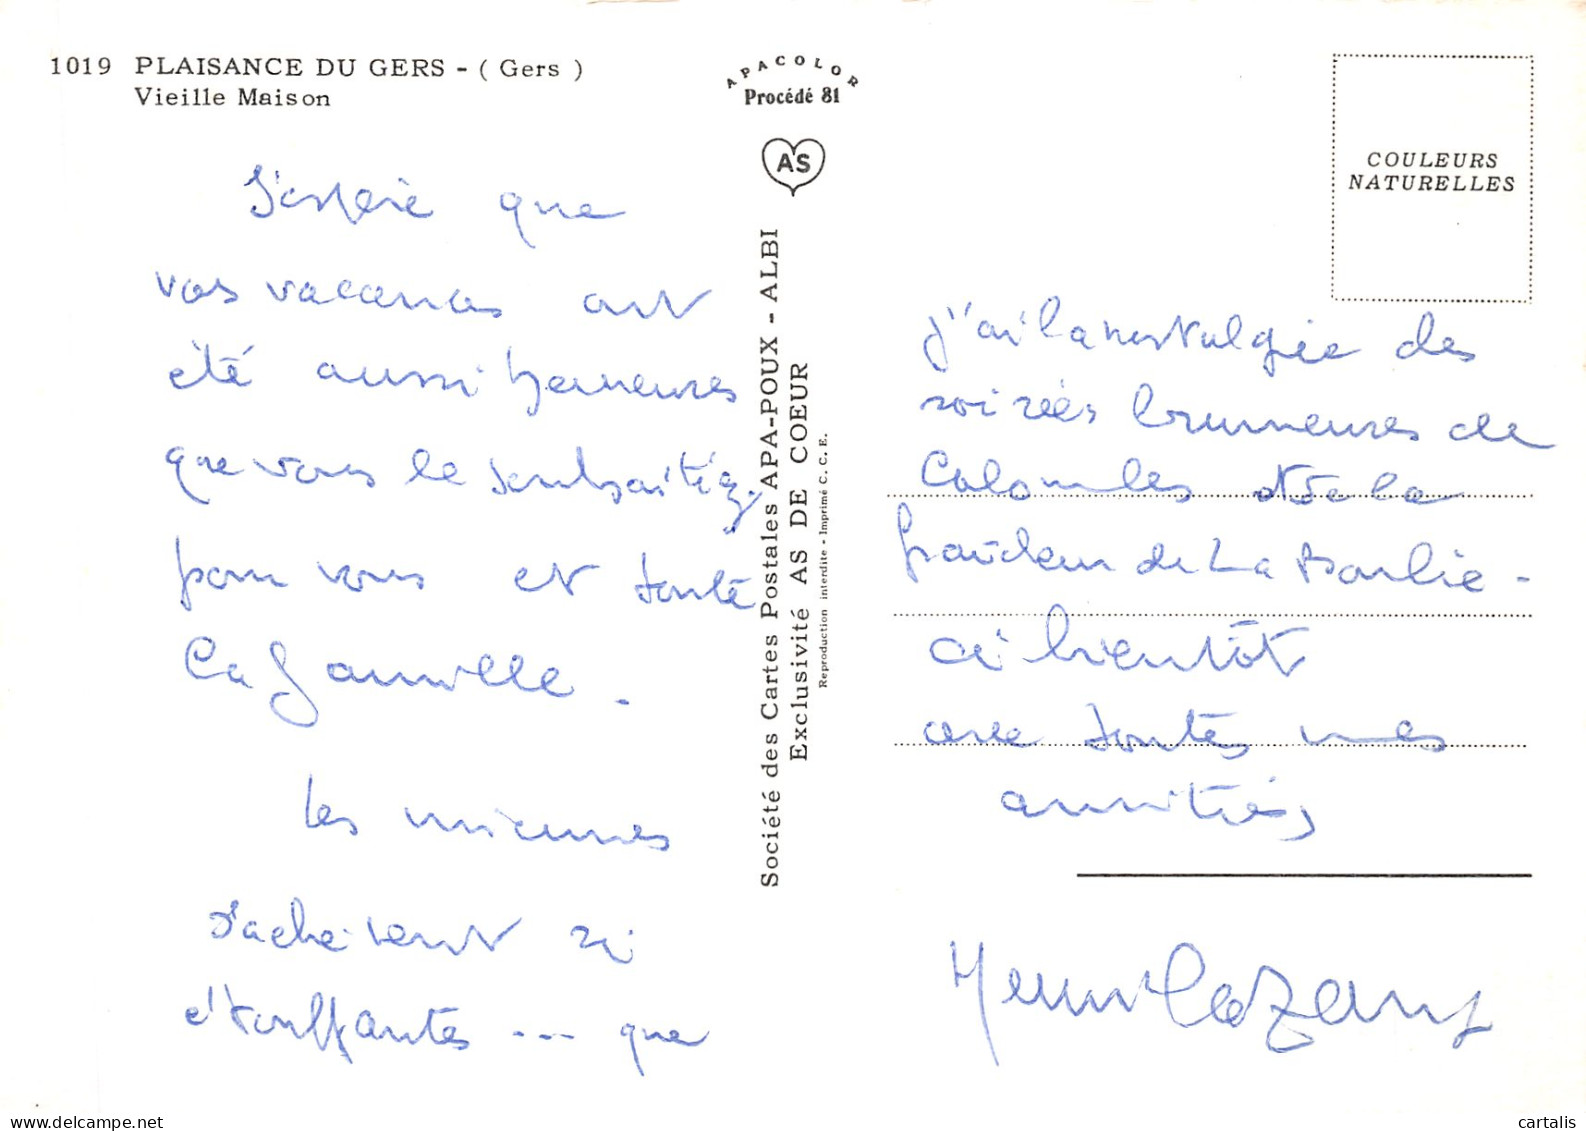 1019 PLAISANCE DU GERS - ( Gers )
Vieille Maison
APACOLOR
Procédé 81
AS
COULEURS
NATURELLES
Société des Cartes Postales APA-POUX - ALBI
Exclusivité AS DE COEUR
Reproduction interdite - Imprimé C. C. E.
J'espère que
vos vacances ont
été aussi heureuses
que vous le souhaitiez
pour vous et toute
la famille.
Les miennes
s'achèvent si
étouffantes ... que
j'ai la nostalgie des
soirées brumeuses de
Colombes et de la
fraîcheur de La
à bientôt
avec toutes mes
amitiés
delcampe.net
cartalis